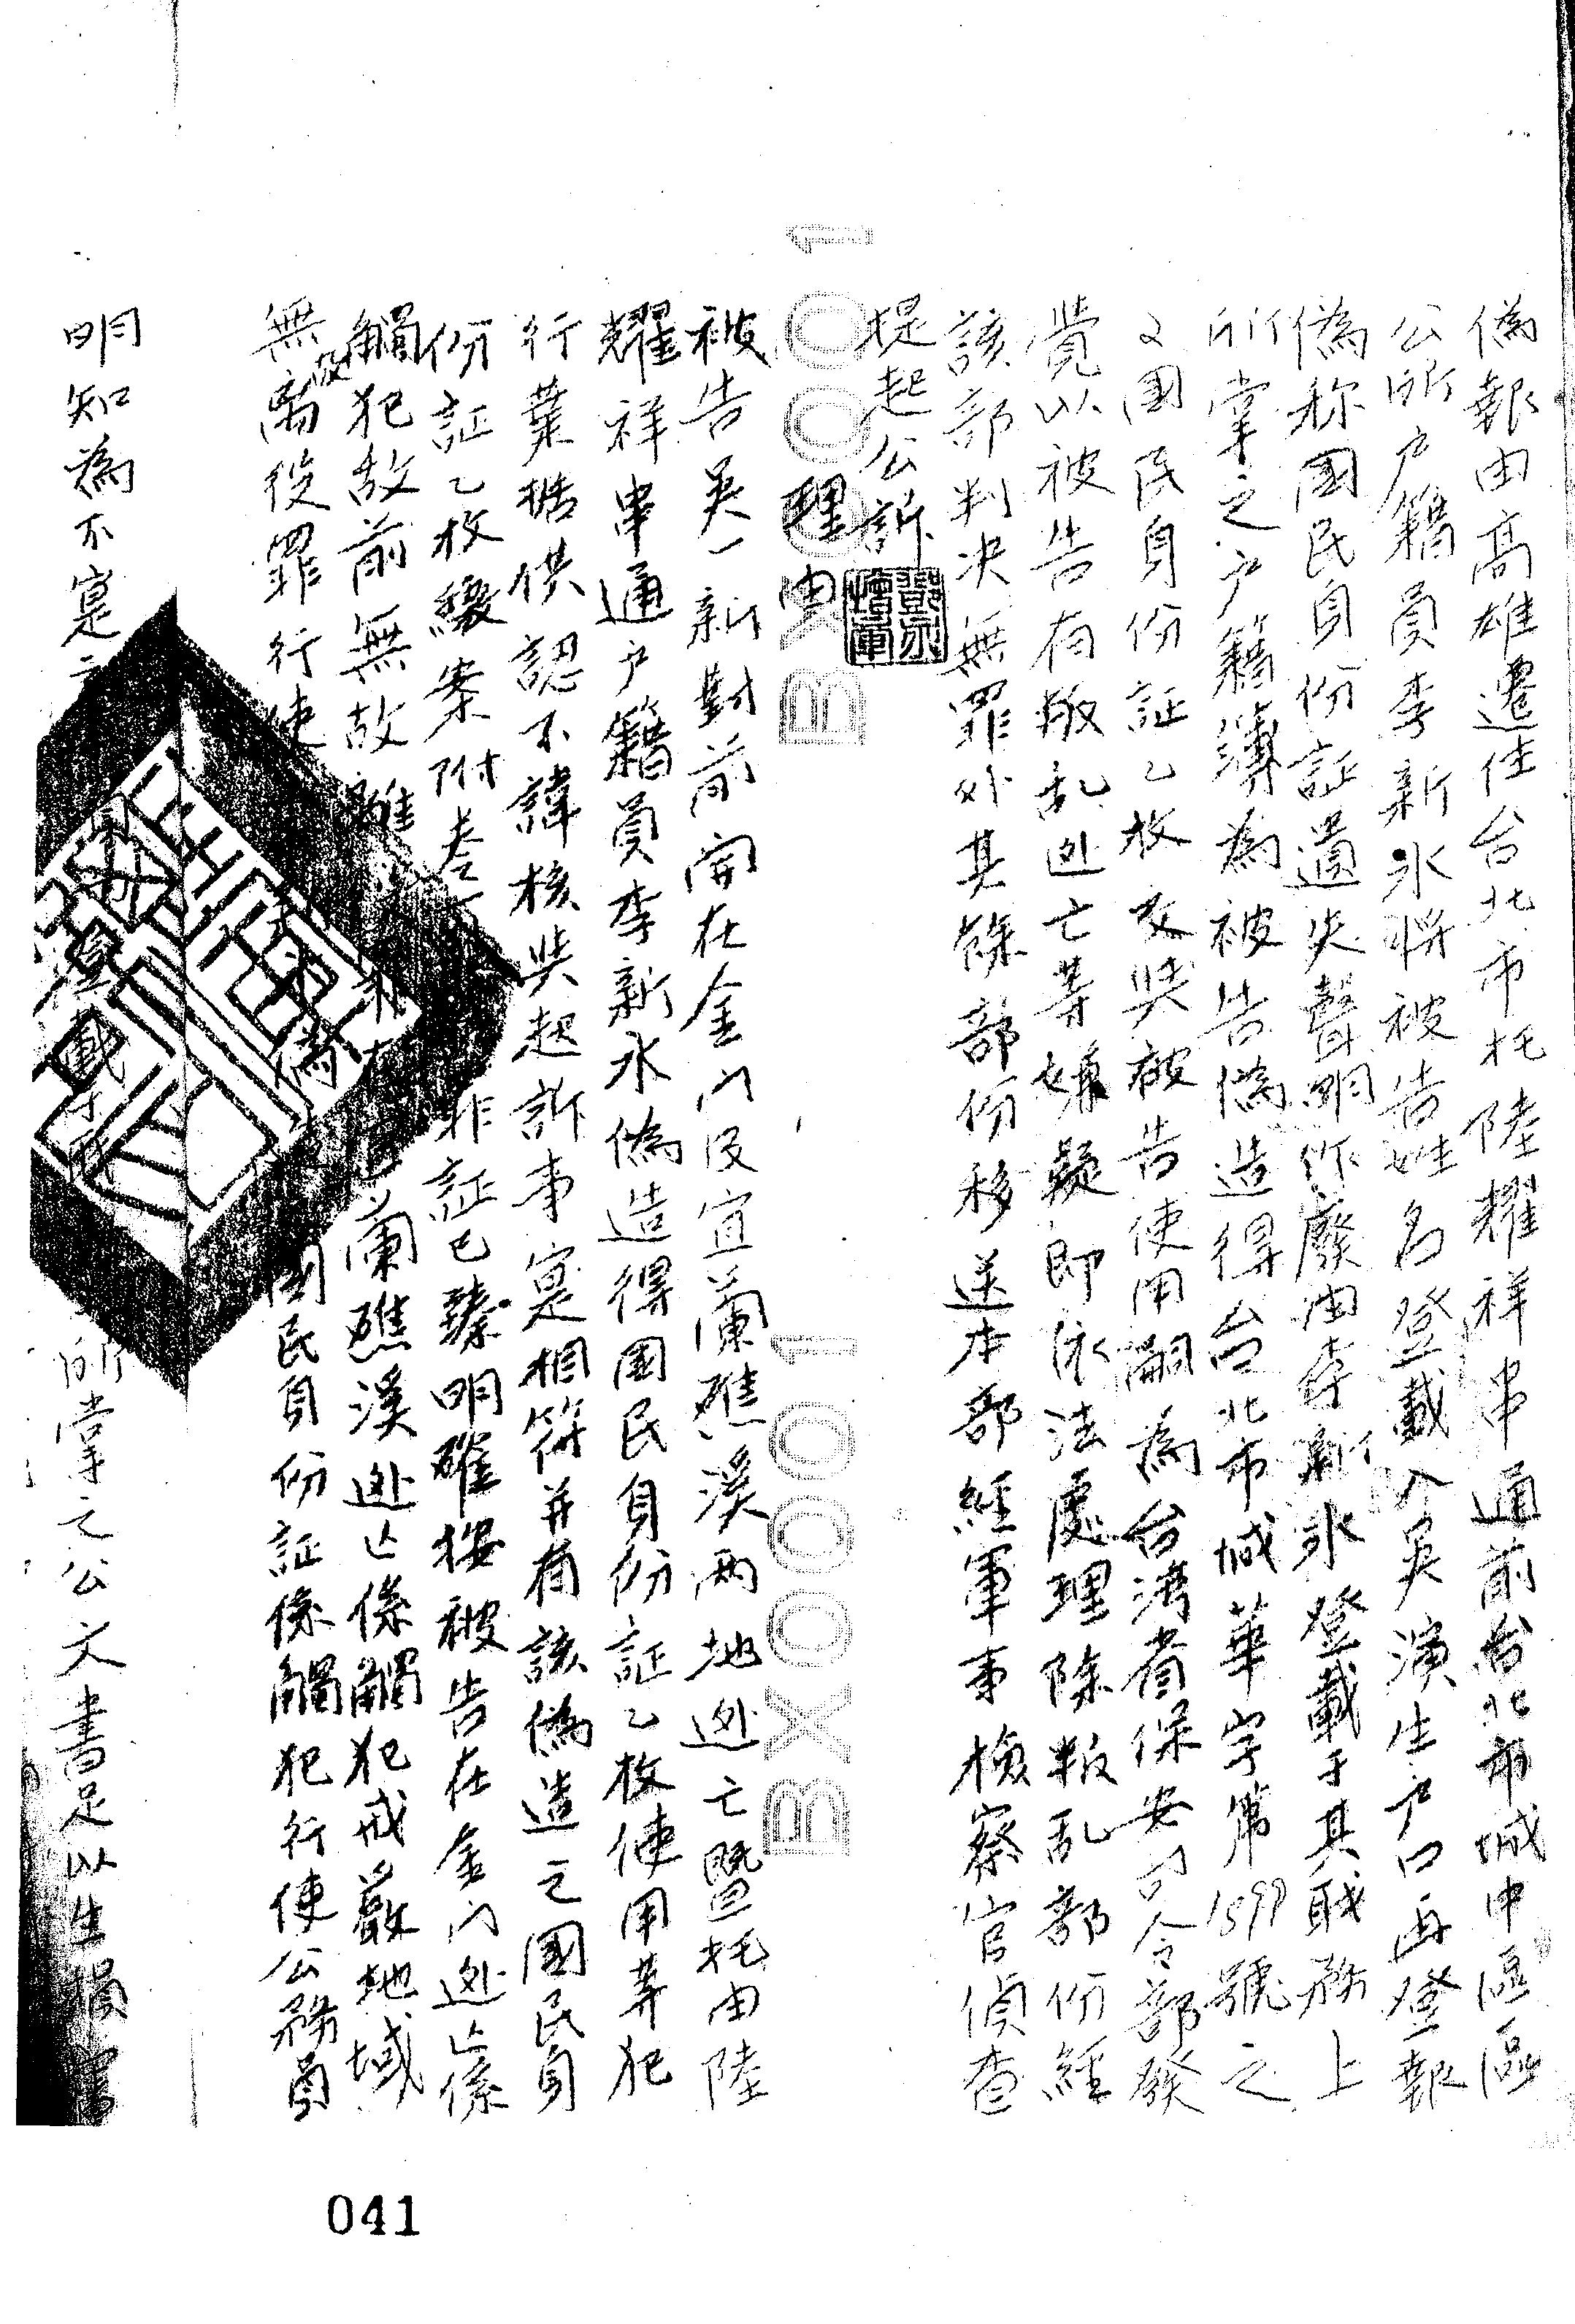 偽報由高雄遷住台北市托陸耀祥串通前台北市城中區區
公所户籍員李新水將被告姓名登載入吳演生户口再登報
偽称國民身份証遺失聲明作廢由李新水登載于其職務上
所掌之户籍簿為被告偽造得台北市城華字第1599號之
國民身份証乙枚交與被告使用嗣為台湾省保安司令部發
覺以被告有叛乱逃亡等嫌疑即依法處理除叛乱部份經
該部判决無罪外其餘部份移送本部經軍事檢察官偵查
提起公訴
理由
被告吳一新對前開在金门及宜蘭礁溪两地逃亡暨托由陸
耀祥串通户籍員李新水偽造得國民身份証乙枚使用等犯
行業據供認不諱核與起訴事實相符并有該偽造之國民身
份証乙枚繳案附卷 非証已臻明確按被告在金门逃亡係
觸犯敌前無故離 蘭礁溪逃亡係觸犯戒嚴地域
無故離役罪行使 國民身份証係觸犯行使公務員
明知為不實之 登載于 所掌之公文書足以生損害
BX0001
BX0001
041